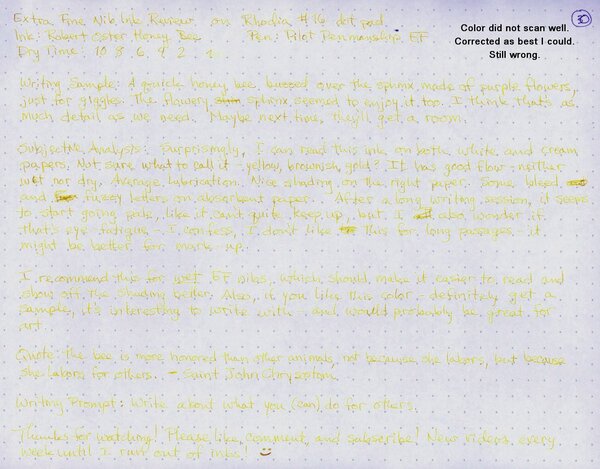 Extra Fine Nib Ink Review on Rhodia #16 dot pad.
Ink: Robert Oster Honey Bee Pen: Pilot Penmanship EF
Dry Time: 10 8 6 4 2 1
Color did not scan well.
Corrected as best I could.
Still wrong.
30
Writing Sample: A quick honey bee buzzed over the sphinx made of purple flowers,
just for giggles. The flowery sphinx seemed to enjoy it too. I think that's as
much detail as we need. Maybe next time, they'll get a room.
Subjective Analysis: Surprisingly, I can read this ink on both white and cream
papers. Not sure what to call it - yellow, brownish, gold? It has good flow - neither
wet nor dry. Average lubrication. Nice shading on the right paper. Some bleed
and fuzzy letters on absorbent paper. After a long writing session, it seems
to start going pale, like it can't quite keep up, but I also wonder if
that's eye fatigue - I confess, I don't like this for long passages - it
might be better for mark-up.
I recommend this for wet EF nibs, which should make it easier to read and
show off the shading better. Also, if you like this color, definitely get a
sample, it's interesting to write with - and would probably be great for
art.
Quote: The bee is more honored than other animals, not because she labors, but because
she labors for others. - Saint John Chrysostom
Writing Prompt: Write about what you (can) do for others.
Thanks for watching! Please like, comment, and subscribe! New videos every
week until I run out of inks!